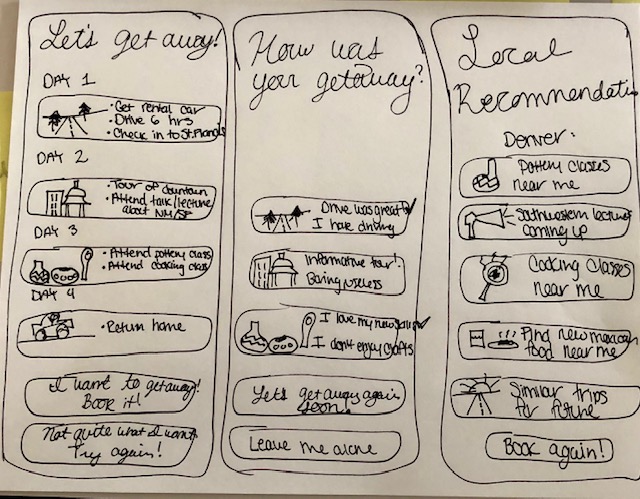 Let's get away!
DAY 1
• Get rental car
• Drive 6 hrs
• Check in to St. Francis
DAY 2
• Tour of downtown
• Attend talk/lecture
about NM/SF
DAY 3
• Attend pottery class
• Attend cooking class
DAY 4
• Return home
I want to getaway!
Book it!
Not quite what I want
Try again!
How was
your getaway?
Drive was great!
I hate driving
Informative tour!
Boring useless
I love my new skills
I don't enjoy crafts
Let's get away again
soon.
Leave me alone
Local
Recommendatio
Denver:
Pottery classes
near me
Southwestern lectures
coming up
Cooking Classes
near me
Find new mexican
food near me
Similar trips
for future
Book again!